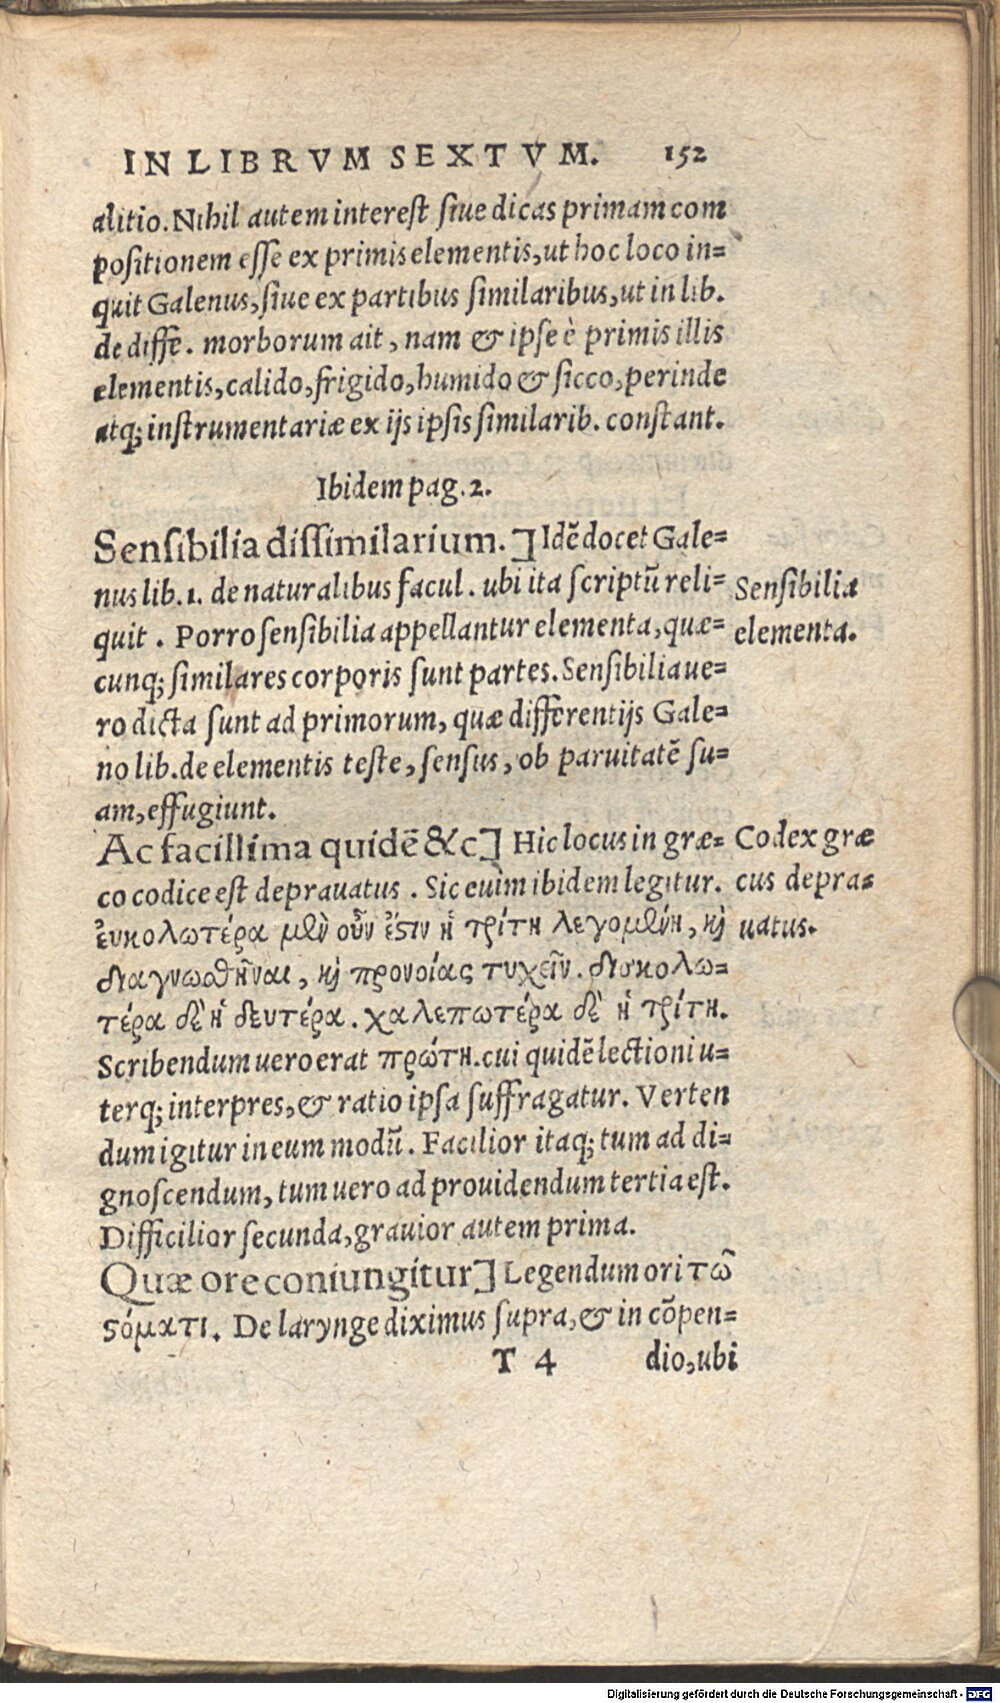 IN LIBRVM SEXTVM. 152
alitio. Nihil autem interest siue dicas primam com
positionem esse ex primis elementis, ut hoc loco in=
quit Galenus, siue ex partibus similaribus, ut in lib.
de diffe. morborum ait, nam & ipse è primis illis
elementis, calido, frigido, humido & sicco, perinde
atq; instrumentariæ ex ijs ipsis similarib. constant.
Ibidem pag. 2.
Sensibilia dissimilarium.] Idē docet Gale=
nus lib. 1. de naturalibus facul. ubi ita scriptū reli=
quit. Porro sensibilia appellantur elementa, quæ=
cunq; similares corporis sunt partes. Sensibilia ue=
ro dicta sunt ad primorum, quæ differentijs Gale=
no lib. de elementis teste, sensus, ob paruitatē su=
am, effugiunt.
Sensibilia
elementa.
Ac facillima quidē &c] Hic locus in græ=
co codice est deprauatus. Sic euim ibidem legitur.
ἐυκολωτέρα μὲν οὖν ἔστιν ἡ τρίτη λεγομένη, καὶ
διαγνωσθῆναι, καὶ προνοίας τυχεῖν. δισκολω=
τέρα δὲ ἡ δευτέρα. χαλεπωτέρα δὲ ἡ τρίτη.
Scribendum uero erat πρώτη. cui quidē lectioni u=
terq; interpres, & ratio ipsa suffragatur. Verten
dum igitur in eum modū. Facilior itaq; tum ad di=
gnoscendum, tum uero ad prouidendum tertia est.
Difficilior secunda, grauior autem prima.
Codex græ
cus depra=
uatus.
Quæ ore coniungitur] Legendum ori τῶ
στόματι. De larynge diximus supra, & in cōpen=
T 4 dio, ubi
Digitalisierung gefördert durch die Deutsche Forschungsgemeinschaft - DFG